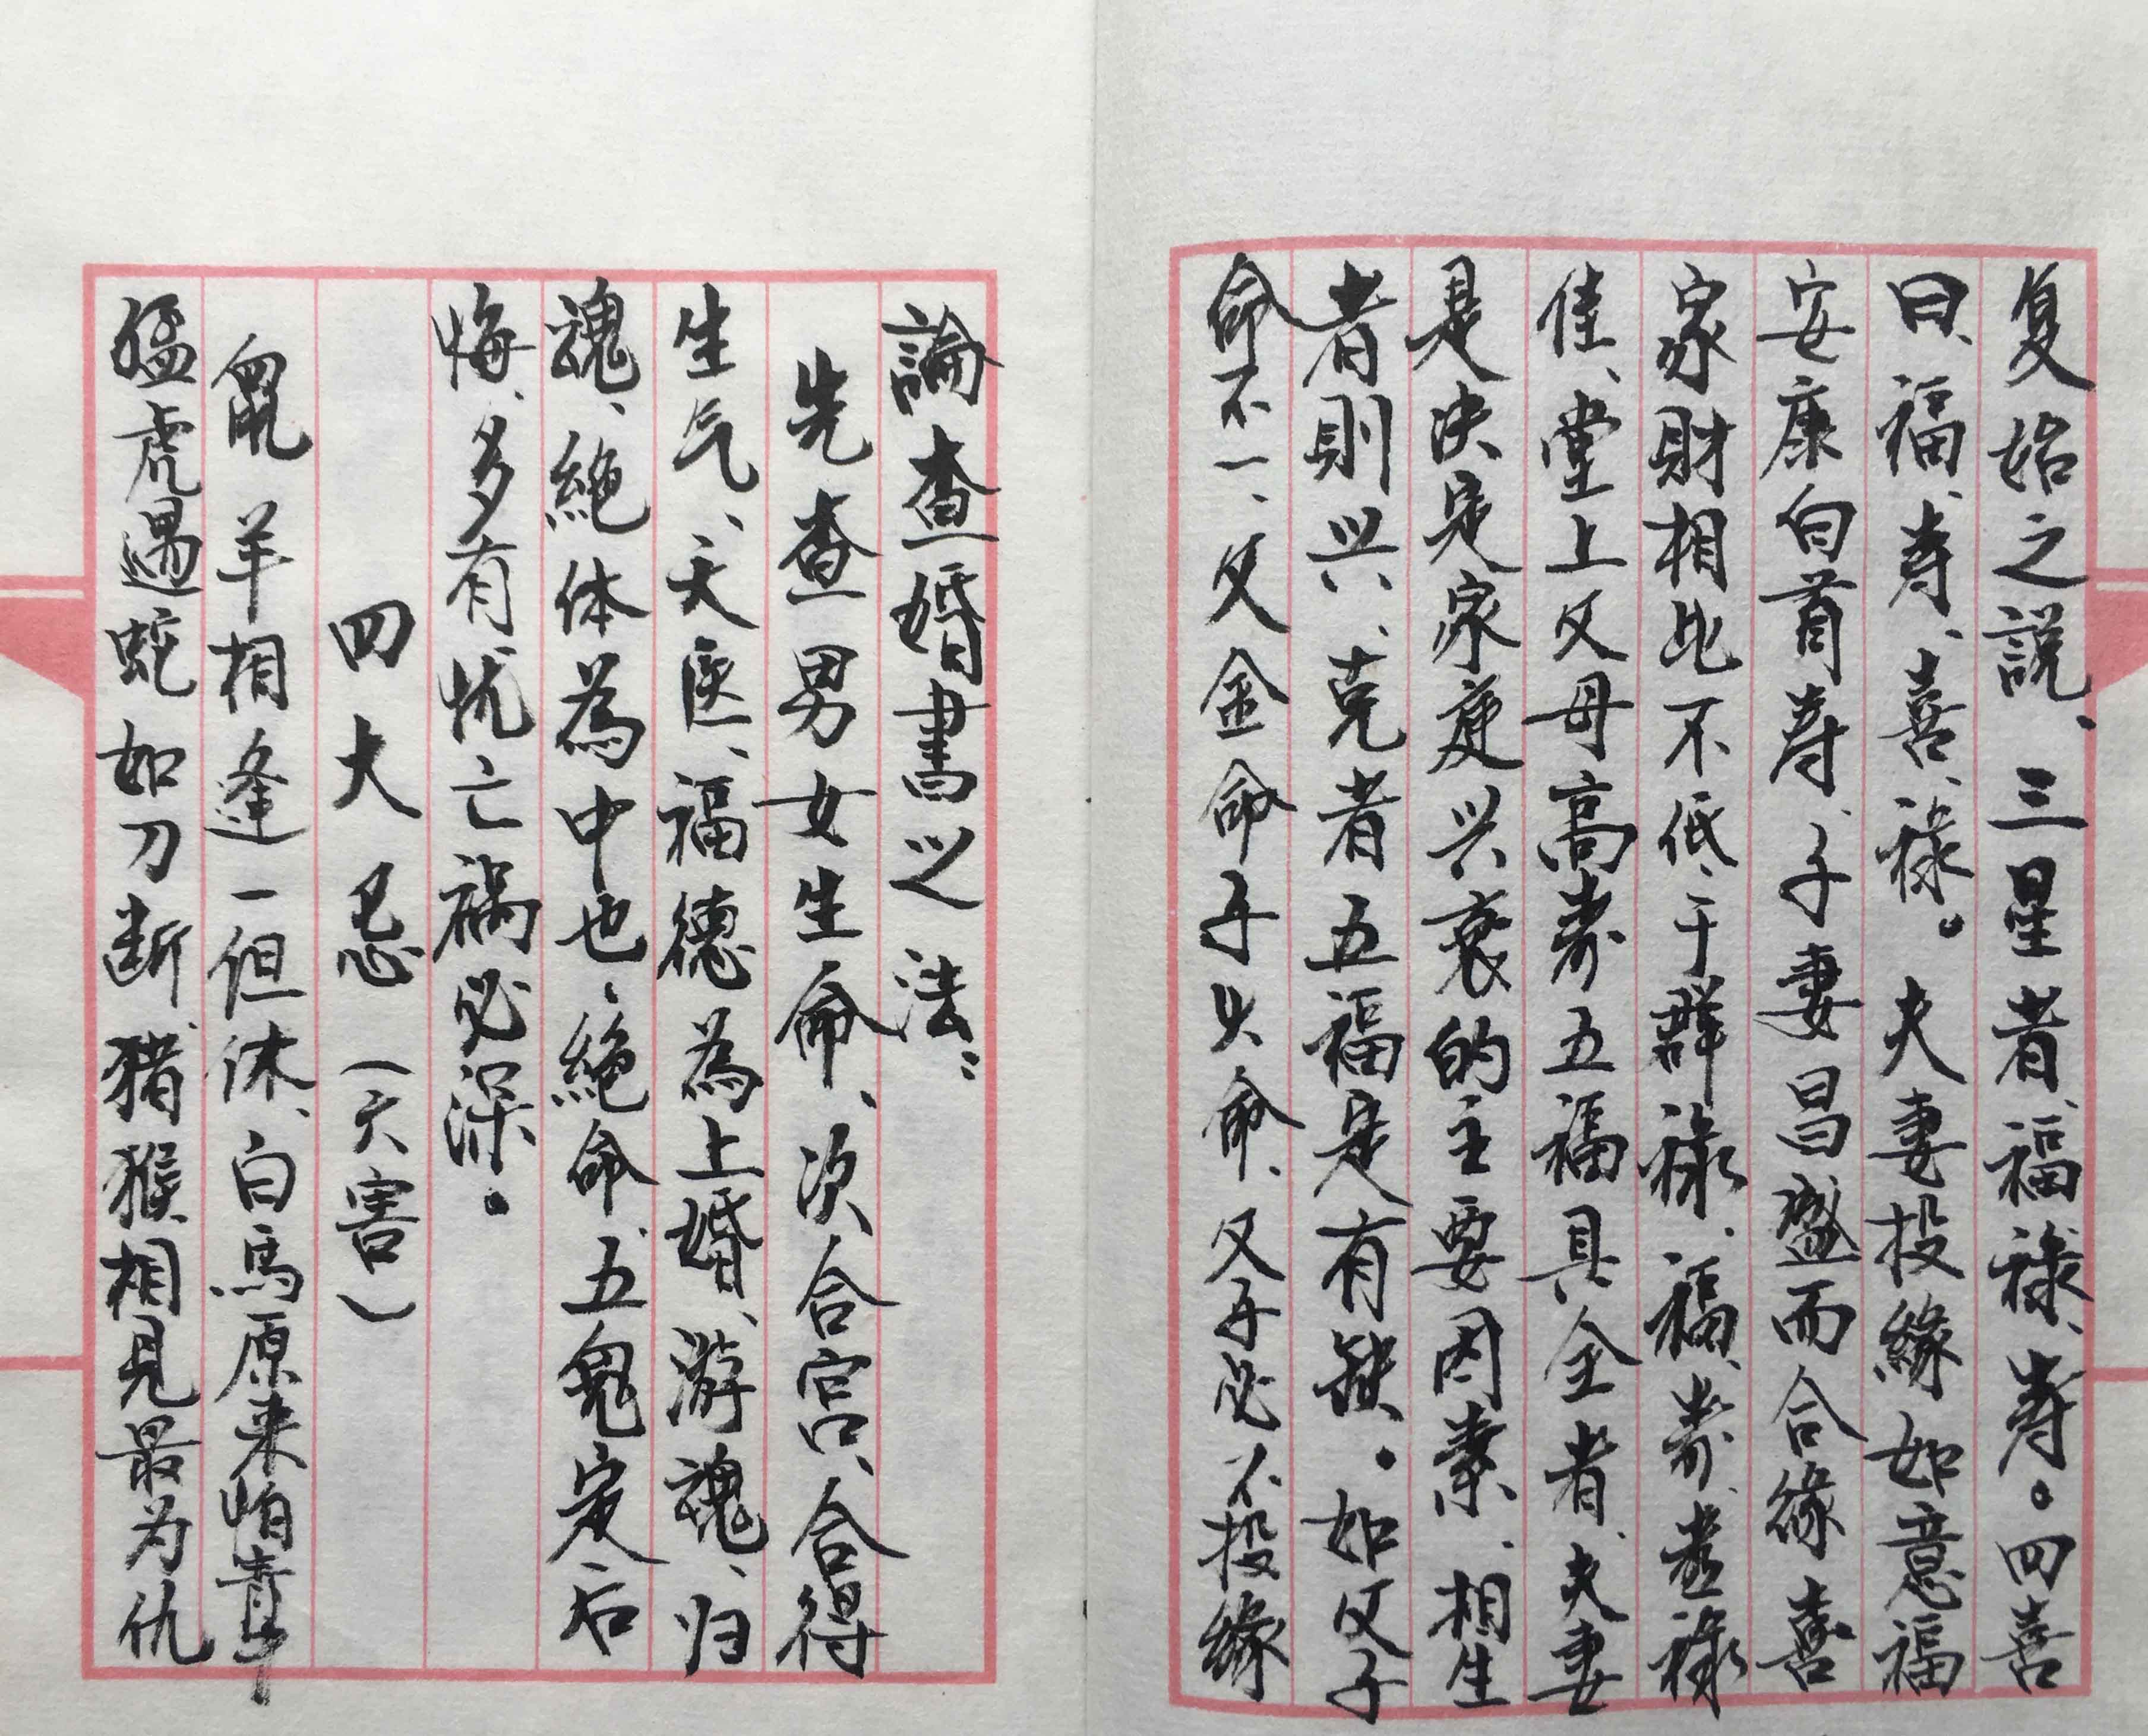 复始之説、三星者、福、禄、寿。四喜
曰、福、寿、喜、禄。夫妻投緣如意福
安康白首寿、子妻昌盛而合缘喜
家財相比不低于群禄、福、寿、喜禄
佳、堂上父母高寿五福具全者、夫妻
是决定家庭兴衰的主要因素、相生
者則兴、克者五福是有缺。如父子
命不一、父金命子火命、父子必不投缘
論查婚書之法：
先查男女生命、次合宫、合得
生气、天医、福德為上婚、游魂、归
魂、絶体為中也、絶命、五鬼定后
悔、多有忧亡禍必深。
四大忌（六害）
鼠羊相逢一但休、白馬原来怕青牛
猛虎遇蛇如刀断 豬猴相見最为仇